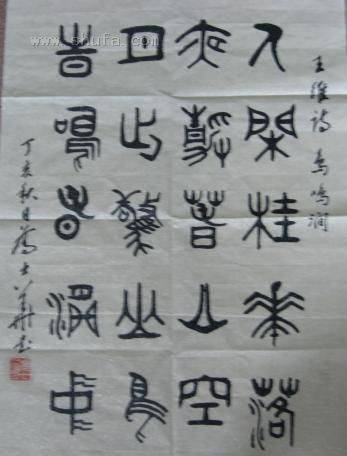 shufa.com
王維詩 鳥鳴澗
人閑桂花落
夜靜春山空
月出驚山鳥
時鳴春澗中
丁亥秋月